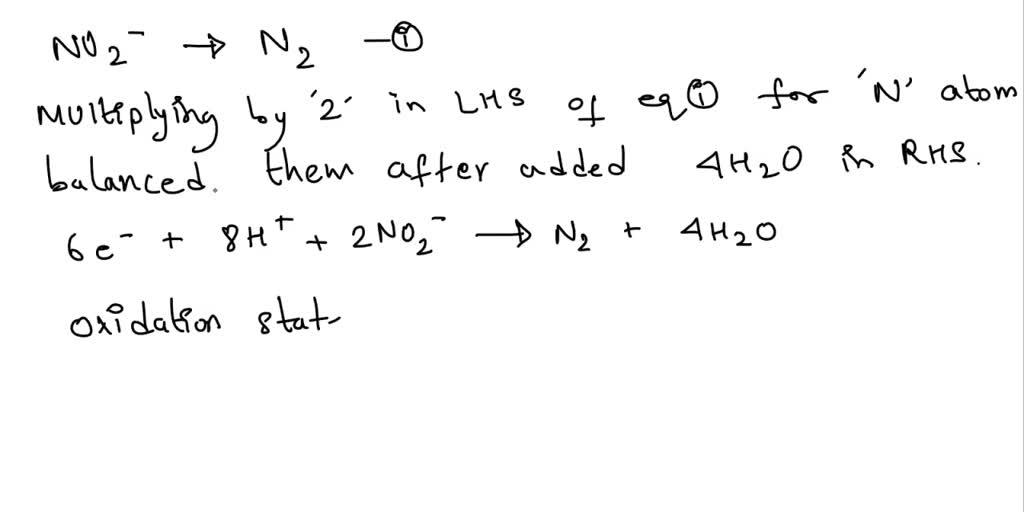 NO₂⁻ → N₂ —①
Multiplying by '2' in LHS of eq① for 'N' atom
balanced. them after added 4H₂O in RHS.
6e⁻ + 8H⁺ + 2NO₂⁻ → N₂ + 4H₂O
oxidation stat